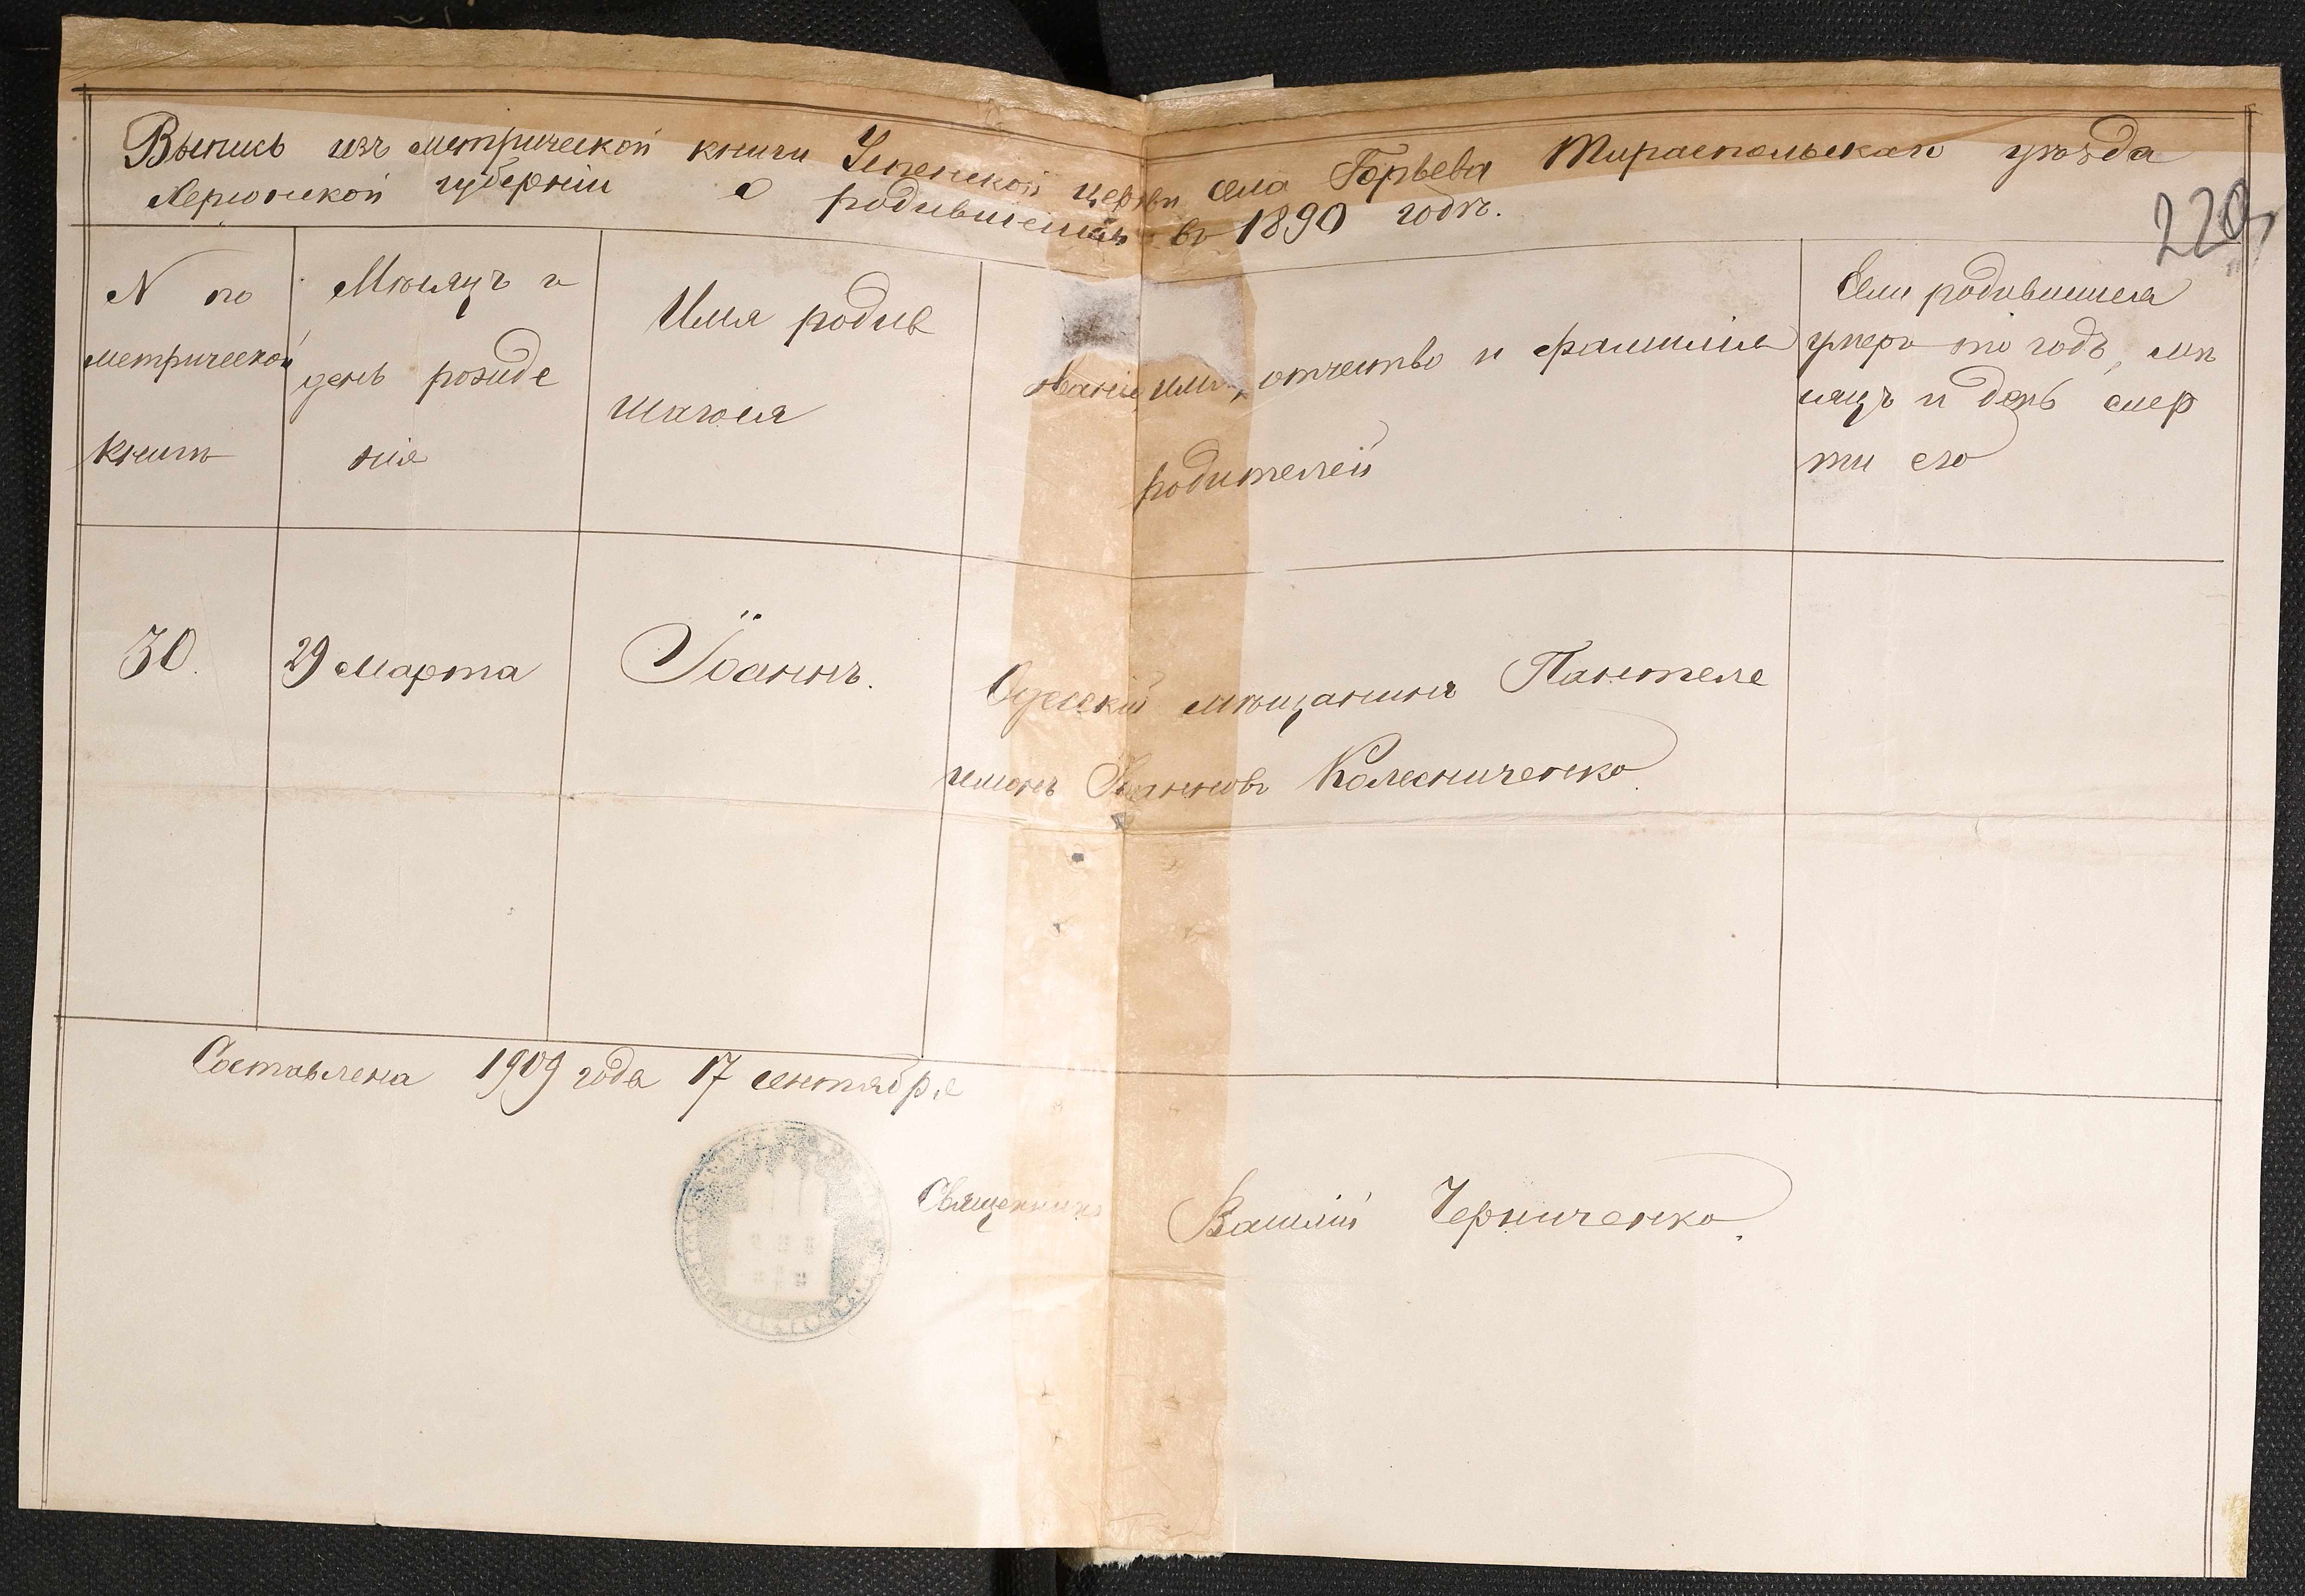 Выпись изъ метрической книги Успенской церкви села Горьева Тираспольскаго уѣзда
Херсонской губерніи о родившемся въ 1890 годѣ.
229
N по
метрической
книгѣ
Мѣсяцъ и
день рожде
нія
Имя родив
шагося
Званіе, имя, отчество и фамилія
родителей
Если родившійся
умеръ то годъ, мѣ
сяцъ и день смер
ти его
30.
29 Марта
Іоаннъ.
Одесскій мѣщанинъ Пантеле
имонъ Іоанновъ Колесниченко.
Составлена 1909 года 17 сентября
Священникъ Василій Черниченко.